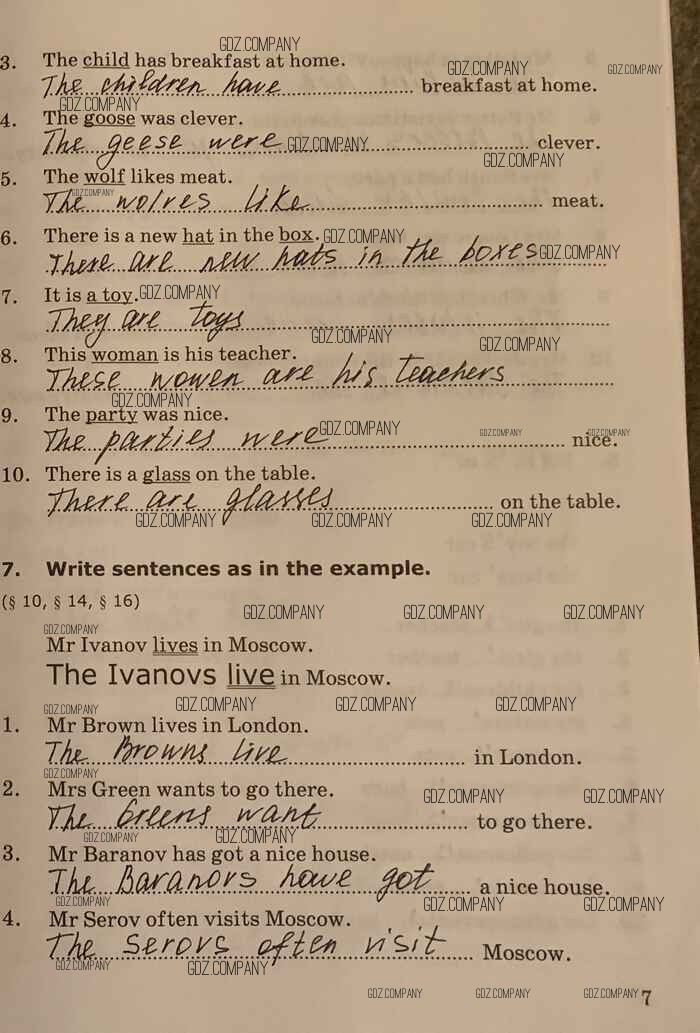 GDZ.COMPANY
3. The child has breakfast at home.
GDZ.COMPANY GDZ.COMPANY
The children have breakfast at home.
GDZ.COMPANY
4. The goose was clever.
The geese were GDZ.COMPANY clever.
GDZ.COMPANY
5. The wolf likes meat.
GDZ.COMPANY
The wolves like meat.
6. There is a new hat in the box. GDZ.COMPANY
There are new hats in the boxes GDZ.COMPANY
7. It is a toy. GDZ.COMPANY
They are toys
GDZ.COMPANY GDZ.COMPANY
8. This woman is his teacher.
These women are his teachers
GDZ.COMPANY
9. The party was nice.
The parties were GDZ.COMPANY GDZ.COMPANY GDZ.COMPANY nice.
10. There is a glass on the table.
There are glasses on the table.
GDZ.COMPANY GDZ.COMPANY GDZ.COMPANY
7. Write sentences as in the example.
(§ 10, § 14, § 16)
GDZ.COMPANY GDZ.COMPANY GDZ.COMPANY
GDZ.COMPANY
Mr Ivanov lives in Moscow.
The Ivanovs live in Moscow.
GDZ.COMPANY GDZ.COMPANY GDZ.COMPANY GDZ.COMPANY
1. Mr Brown lives in London.
The Browns live in London.
GDZ.COMPANY
2. Mrs Green wants to go there.
GDZ.COMPANY GDZ.COMPANY
The Greens want to go there.
GDZ.COMPANY GDZ.COMPANY
3. Mr Baranov has got a nice house.
The Baranovs have got a nice house.
GDZ.COMPANY GDZ.COMPANY GDZ.COMPANY
4. Mr Serov often visits Moscow.
The Serovs often visit Moscow.
GDZ.COMPANY GDZ.COMPANY
GDZ.COMPANY GDZ.COMPANY GDZ.COMPANY 7